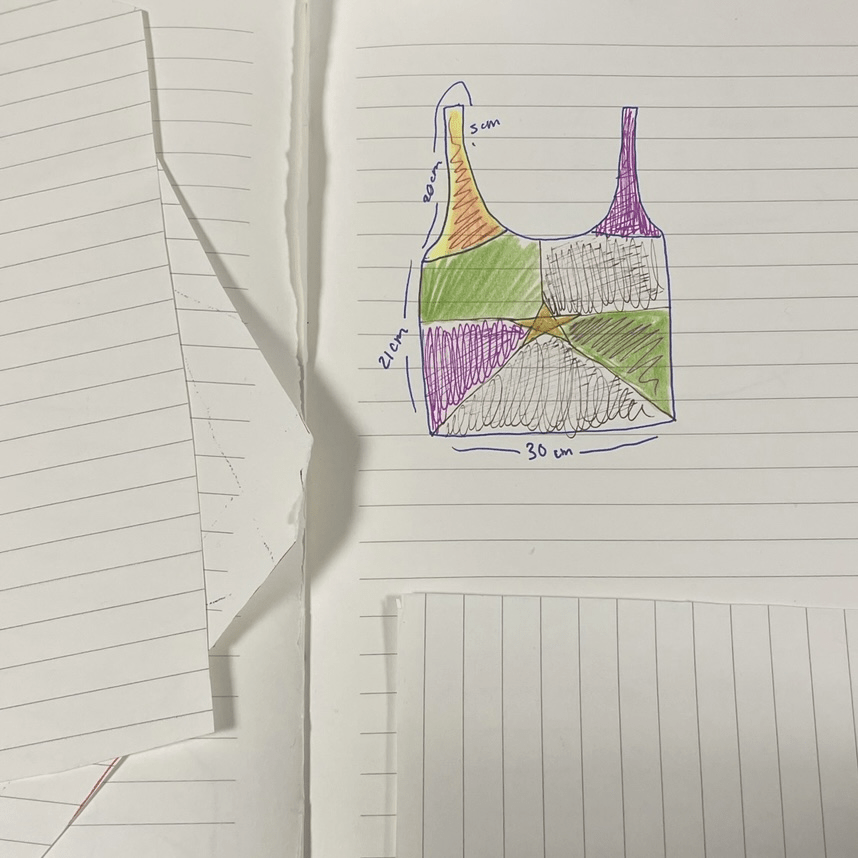 5cm
20cm
21cm
30 cm